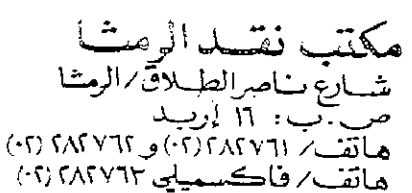 مكتب نقد الرمثا
شارع ناصر الطلاق / الرمثا
ص . ب : ١٦ إربد
هاتف / ٢٨٢٧٦١ (٠٢) و ٢٨٢٧٦٢ (٠٢)
هاتف / فاكسميلي ٢٨٢٧٦٣ (٠٢)